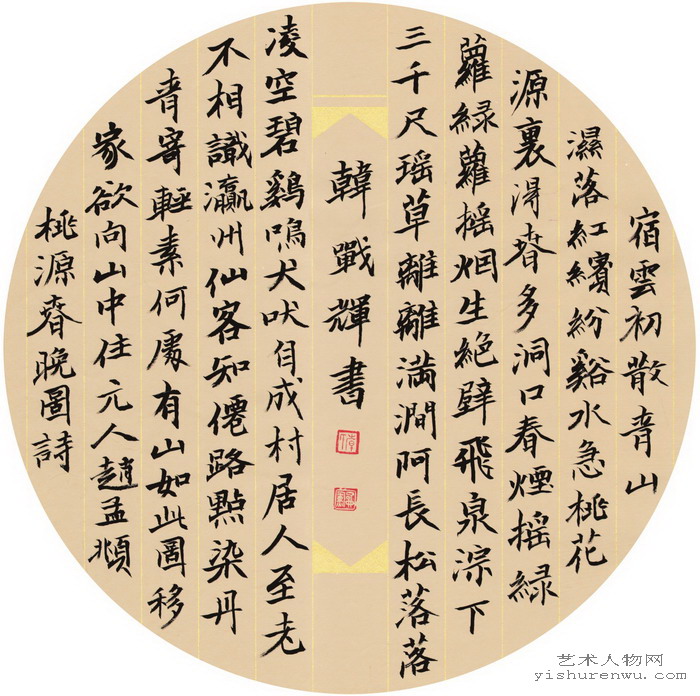 宿雲初散青山
濕落紅繽紛谿水急桃花
源裏淂春多洞口春煙摇緑
蘿緑蘿摇烟生絕壁飛泉淙下
三千尺瑶草離離满澗阿長松落落
凌空碧鷄鳴犬吠自成村居人至老
不相識瀛州仙客知僊路點染丹
青寄輕素何處有山如此圖移
家欲向山中住元人趙孟頫
桃源春晚圖詩
韓戰輝書
艺术人物网
yishurenwu.com